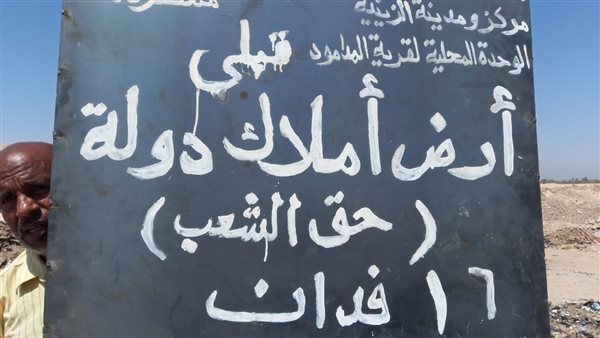 مركز ومدينة الزينية
الوحدة المحلية لقرية المدامود قبلي
أرض أملاك دولة
(حق الشعب)
١٦ فدان